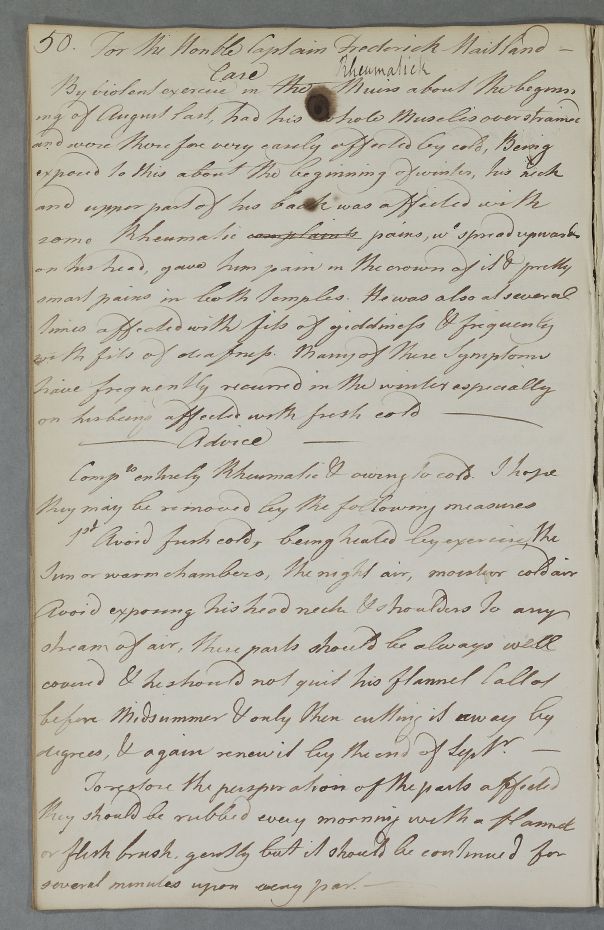 50. For the Honble Captain Frederick Maitland —
Case Rheumatick
By violent exercise in the Muirs about the beginn
ing of August last, had his whole Muscles overstrained
and were therefore very easily affected by cold, Being
exposed to this about the beginning of winter, his neck
and upper part of his back was affected with
some Rheumatic complaints pains, wc spread upwards
on his head, gave him pain in the crown of it & pretty
smart pains in both temples. He was also at several
times affected with fits of giddiness & frequently
with fits of deafness. Many of these Symptoms
have frequently recurred in the winter especially
on his being affected with fresh cold —
— Advice —
Compts entirely Rheumatic & owing to cold. I hope
they may be removed by the following measures
1st Avoid fresh cold, being heated by exercise, the
Sun or warm chambers, the night air, moist or cold air
Avoid exposing his head neck & shoulders to any
stream of air, these parts should be always well
covered & he should not quit his flannel
before Midsummer & only then cutting it away by
degrees, & again renew it by the end of Septr. —
To restore the perspiration of the parts affected
they should be rubbed every morning with a flannel
or flesh brush, gently but it should be continued for
several minutes upon every part. —